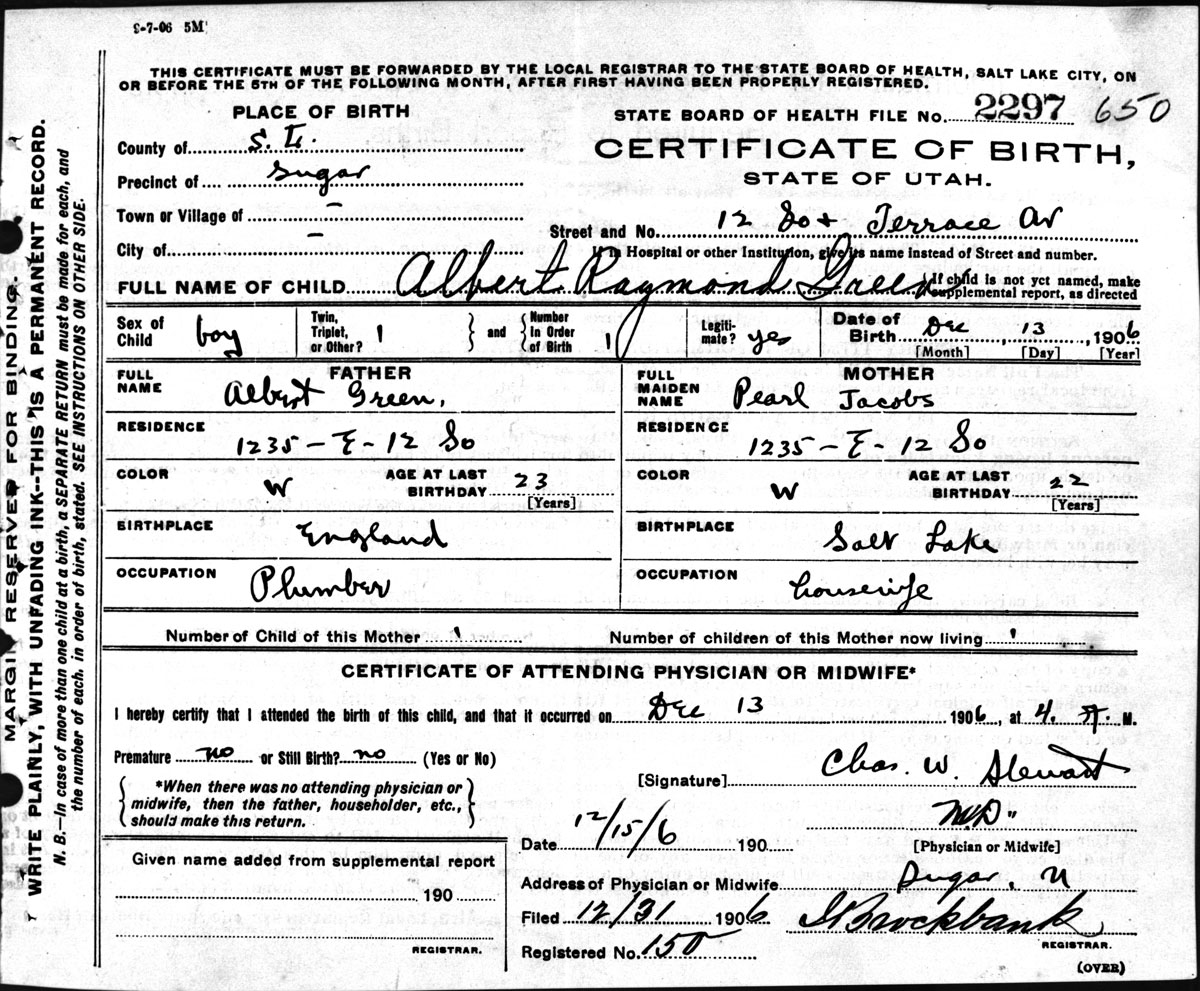 9-7-06 5M
THIS CERTIFICATE MUST BE FORWARDED BY THE LOCAL REGISTRAR TO THE STATE BOARD OF HEALTH, SALT LAKE CITY, ON
OR BEFORE THE 5TH OF THE FOLLOWING MONTH, AFTER FIRST HAVING BEEN PROPERLY REGISTERED.
PLACE OF BIRTH
STATE BOARD OF HEALTH FILE No. 2297 650
County of S. L.
CERTIFICATE OF BIRTH,
Precinct of Sugar
STATE OF UTAH.
Town or Village of –
Street and No. 12 So + Terrace Av
City of –
If in Hospital or other Institution, give its name instead of Street and number.
FULL NAME OF CHILD Albert Raymond Green
{If child is not yet named, make
supplemental report, as directed
Sex of Child boy
Twin, Triplet, or Other? 1 } and { Number In Order of Birth 1
Legitimate? yes
Date of Birth Dec 13, 1906
[Month] [Day] [Year]
FATHER
FULL NAME Albert Green.
RESIDENCE 1235 – E – 12 So
COLOR W
AGE AT LAST BIRTHDAY 23
[Years]
BIRTHPLACE England
OCCUPATION Plumber
MOTHER
FULL MAIDEN NAME Pearl Jacobs
RESIDENCE 1235 – E – 12 So
COLOR W
AGE AT LAST BIRTHDAY 22
[Years]
BIRTHPLACE Salt Lake
OCCUPATION housewife
Number of Child of this Mother 1
Number of children of this Mother now living 1
CERTIFICATE OF ATTENDING PHYSICIAN OR MIDWIFE*
I hereby certify that I attended the birth of this child, and that it occurred on Dec 13 1906, at 4. A. M.
Premature no or Still Birth? no (Yes or No)
{ *When there was no attending physician or
midwife, then the father, householder, etc.,
should make this return. }
[Signature] Chas. W. Stewart
M.D"
[Physician or Midwife]
Date 12/15/6 190
Address of Physician or Midwife Sugar, U
Filed 12/31 1906
Brockbank
REGISTRAR.
Registered No. 150
(OVER)
Given name added from supplemental report
190
REGISTRAR.
MARGIN RESERVED FOR BINDING.
WRITE PLAINLY, WITH UNFADING INK--THIS IS A PERMANENT RECORD.
N. B.—In case of more than one child at a birth, a SEPARATE RETURN must be made for each, and
the number of each, in order of birth, stated. SEE INSTRUCTIONS ON OTHER SIDE.